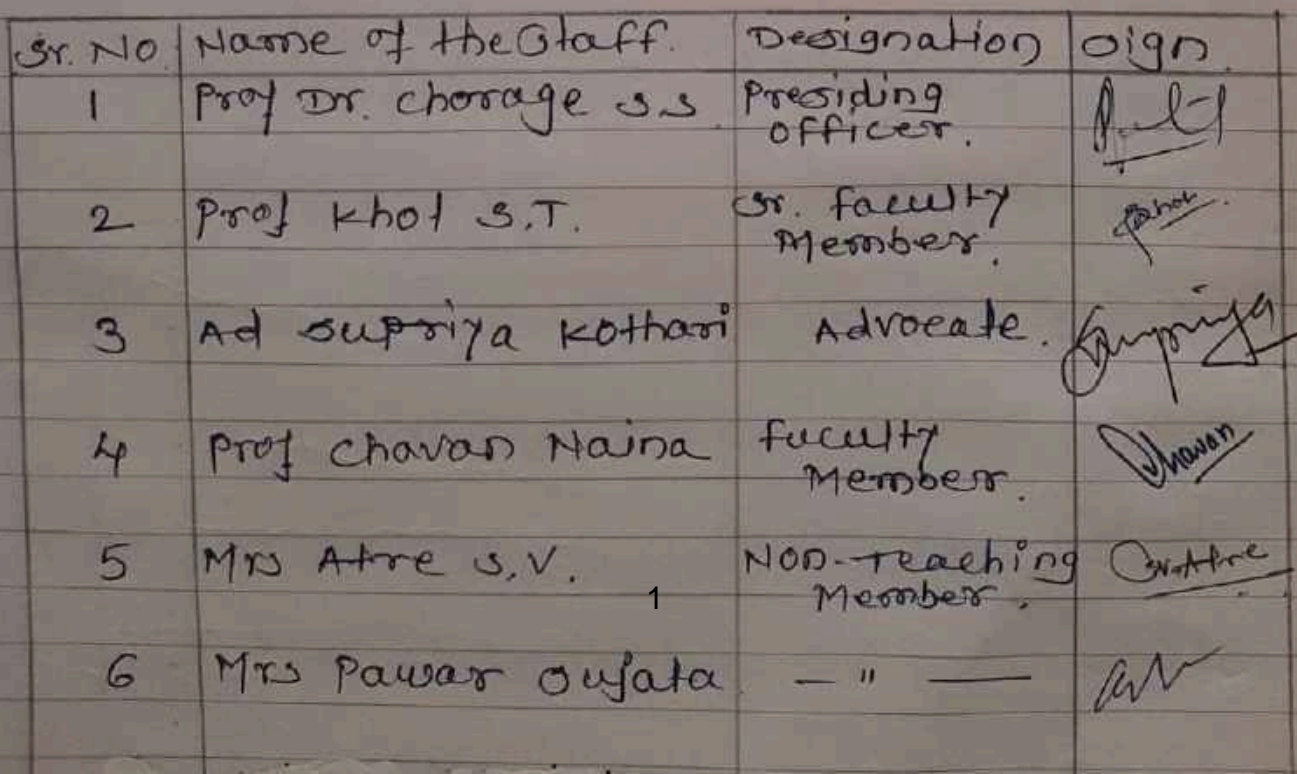 Sr. No. Name of the Staff. Designation Sign.
1 Prof Dr. Chorage S.S. Presiding
Officer.
2 Prof Khot S.T. Sr. faculty
Member.
3 Ad Supriya Kothari Advocate. Supriya
4 Prof Chavan Naina faculty Chavan
Member.
5 Mrs Atre S.V. Non-Teaching S.V.Atre
Member.
1
6 Mrs Pawar Sujata — " —